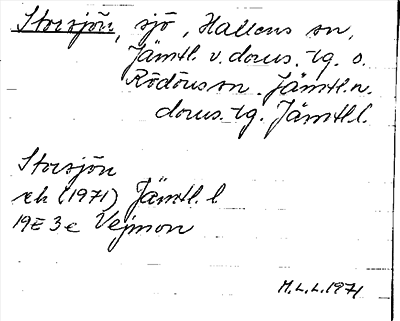 Storsjön, sjö, Hallens sn,
Jämtl. v. doms.-tg. o.
Rödöns sn. Jämtl. n.
doms.-tg. Jämtl. l.
Storsjön
ek (1971) Jämtl. l
19E 3e Vejmon
M.L.L. 1971